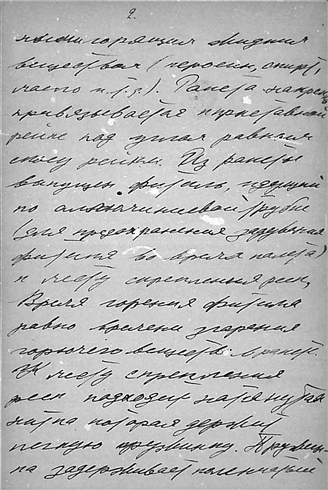 2.
горящия жидкия
вещества (керосин, спирт,
масло и.т.д.). Ракета
привязывается к приставной
рейке под углом равным
сносу рейки. Из ракеты
выпущен фитиль, идущий
по алюминиевой трубке
(для предохранения задувания
фитиля во время полета)
к месту скрепления реек,
Время горения фитиля
равно времени згорания
горючего веществ. в ракете.
К месту скрепления
реек подходит натянутая
нитка которая держит
легкую пружинку. Пружин-
ка задерживает